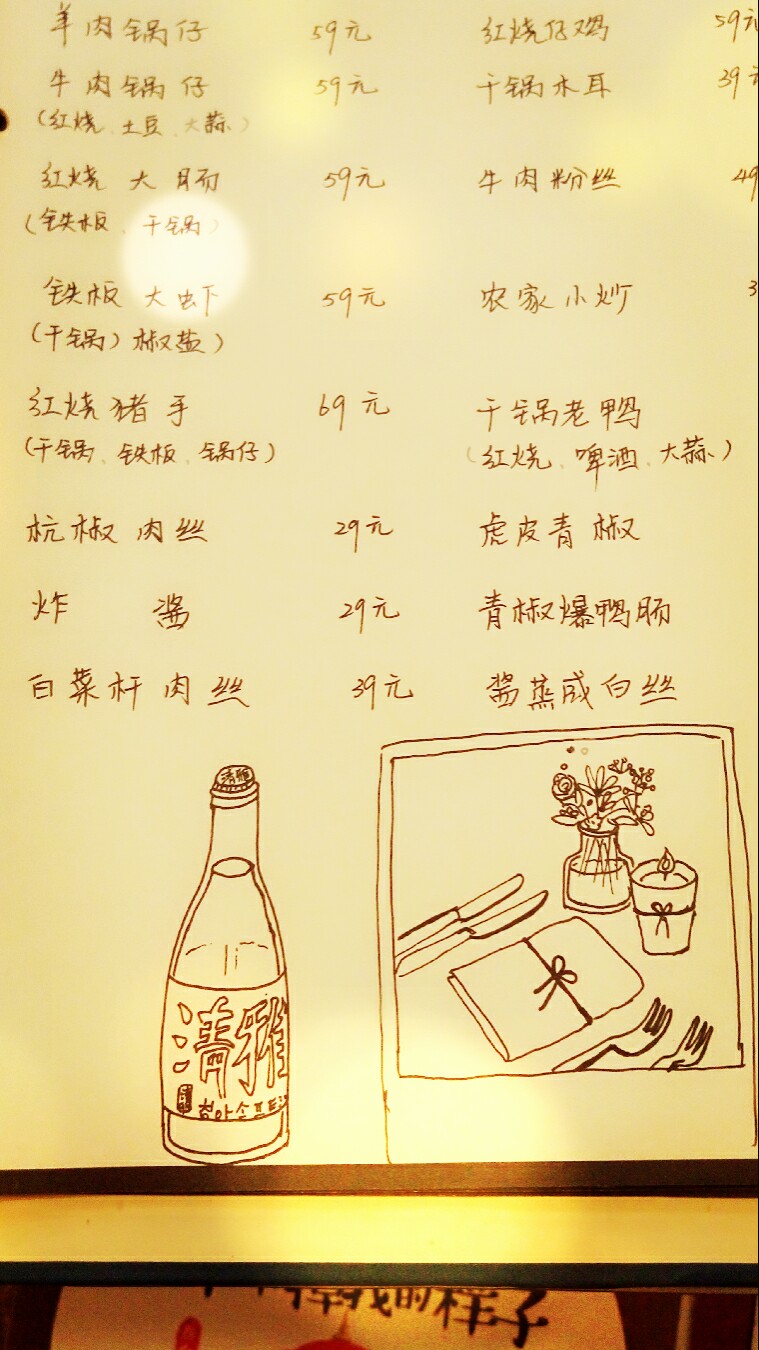 羊肉锅仔 59元 红烧仔鸡 59元
牛肉锅仔 59元 干锅木耳 39元
(红烧、土豆、大蒜)
红烧大肠 59元 牛肉粉丝 49
(铁板、干锅)
铁板大虾 59元 农家小炒 3
(干锅)椒盐)
红烧猪手 69元 干锅老鸭
(干锅、铁板、锅仔) (红烧、啤酒、大蒜)
杭椒肉丝 29元 虎皮青椒
炸酱 29元 青椒爆鸭肠
白菜杆肉丝 39元 酱蒸咸白丝
清雅
清雅
청아소프트
的样子